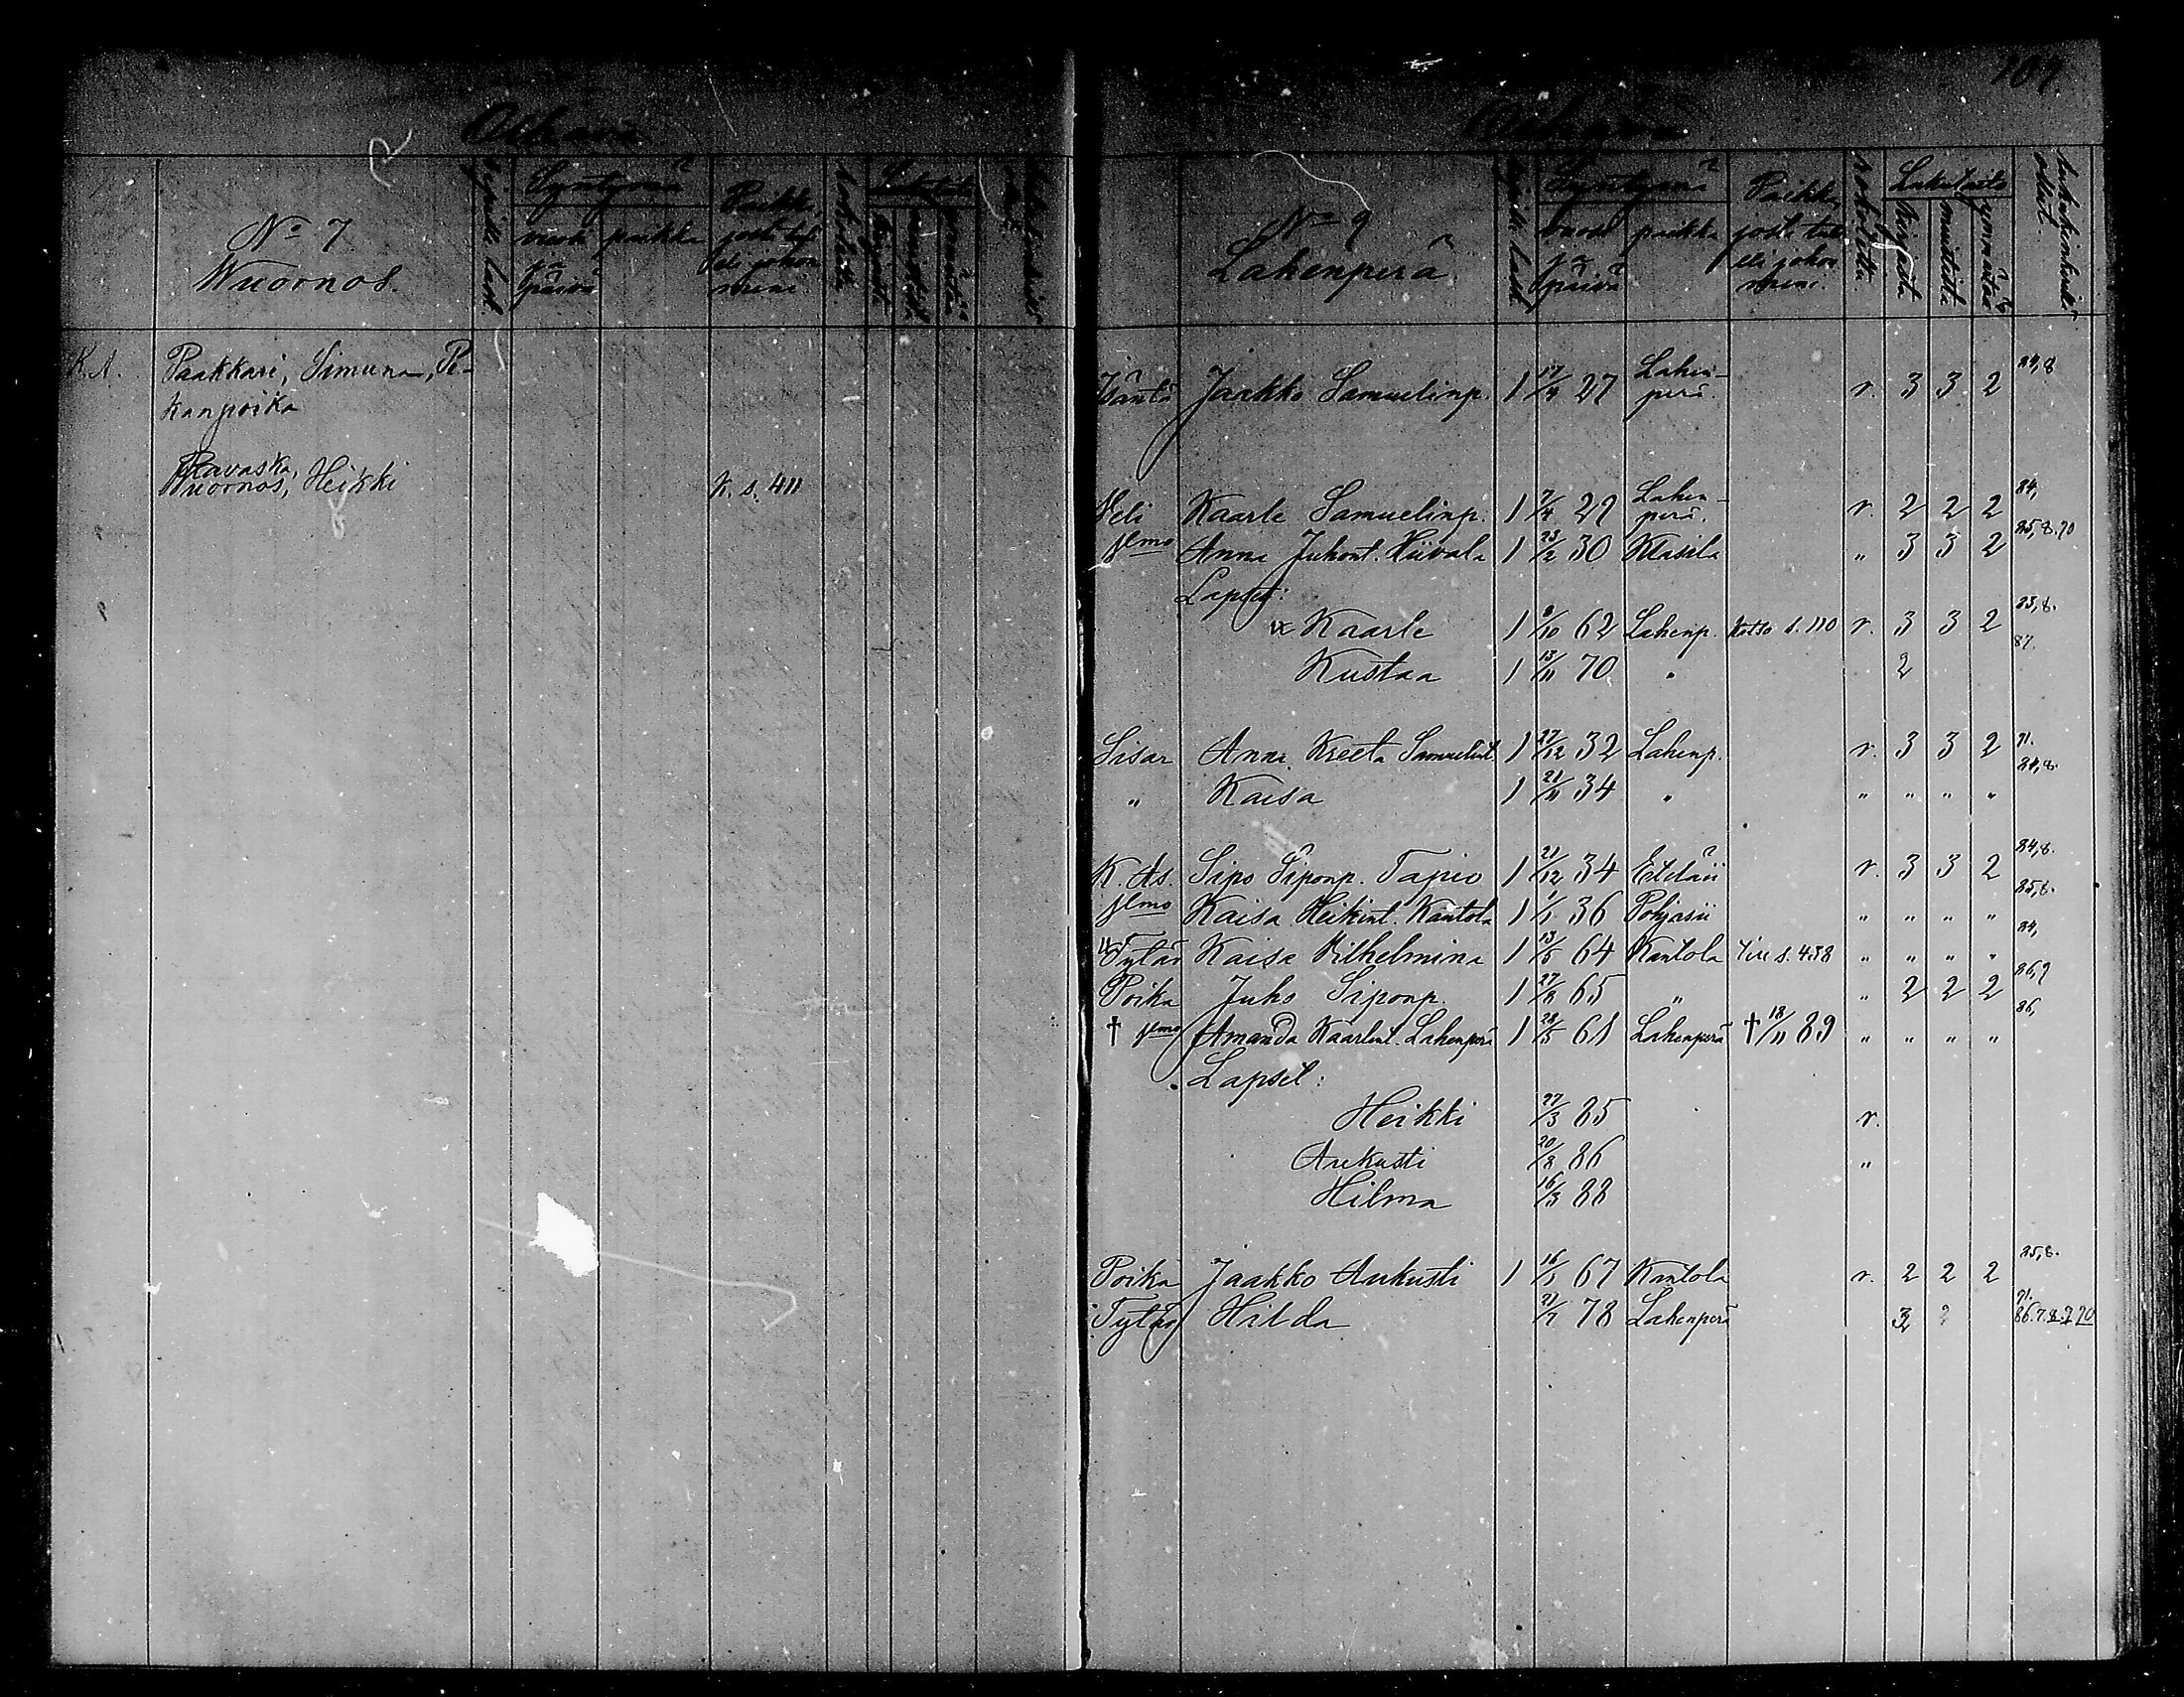 109
Syntymä
Paikka,
vuosi paikka josta tul.
ja eli johon
päivä meni.
No 7
Wuornos.
K.A. Paakkari, Simuna, Pe-
kanpoika
Ravaska,
Wuornos, Heikki K. s. 411
No 9
Lahenperä
Syntymä Paikka, Lukutaito
vuosi paikka josta tul.
ja eli johon
päivä meni.
rokotettu. kirjasta muistista ymmärtää
Isäntä Jaakko Samuelinp. 1 17/4 27 Lahen-
perä. r. 3 3 2 84,8
Veli Kaarle Samuelinp. 1 7/4 29 Lahen-
perä. r. 2 2 2 84,
Vmo Anna Juhont. Hiivala 1 23/2 30 Klasila " 3 3 2 85,8.90
Lapset:
Kaarle 1 8/10 62 Lahenp. Katso s. 110 r. 3 3 2 83,8.
Kustaa 1 13/11 70 " 2 87.
Sisar Anna Kreeta Samuelint. 1 27/12 32 Lahenp. r. 3 3 2 71.
" Kaisa 1 21/11 34 " " " " " 84,8.
K. As. Sipo Siponp. Tapio 1 21/12 34 Etelä-ii r. 3 3 2 84,8.
Vmo Kaisa Heikint. Kantola 1 1/1 36 Pohjasii " " " " 85,8.
Tytär Kaisa Vilhelmina 1 13/5 64 Kantola s. 438 " " " " 84,
Poika Juho Siponp. 1 27/8 65 " " 2 2 2 86,9
† Vmo Amanda Kaarlent. Lahenperä 1 28/5 61 Lahenperä † 18/11 89 " " " " 86,
Lapset:
Heikki 27/3 85 r.
Aukusti 20/8 86 "
Hilma 16/3 88
Poika Jaakko Aukusti 1 16/5 67 Kantola r. 2 2 2 85,8.
Tytär Hilda 21/7 78 Lahenperä 3 91.
86.7.8.9.90